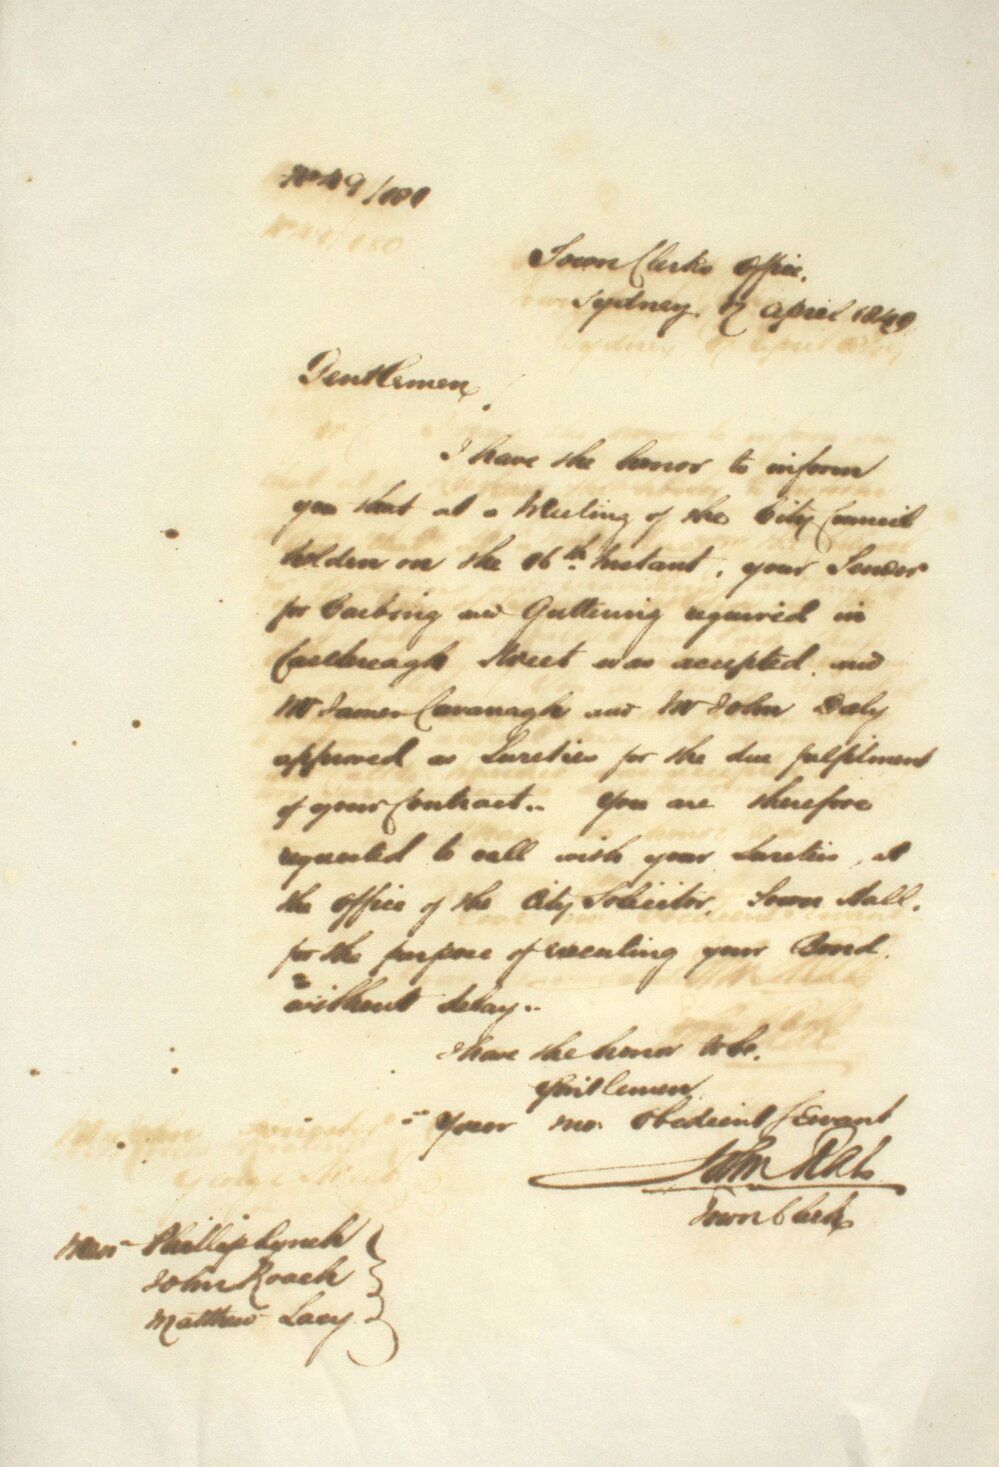 No 49/181
Town Clerks Office,
Sydney, 17 April 1849
Gentlemen,
I have the honor to inform
you that at a Meeting of the City Council
holden on the 16th Instant, your Tender
for Curbing and Guttering required in
Castlereagh Street was accepted, and
Mr James Cavanagh and Mr John Daly
approved as Sureties for the due fulfilment
of your Contract.. You are therefore
requested to call with your Sureties, at
the office of the City Solicitor, Town Hall,
for the purpose of executing your Bond,
without delay..
I have the honor to be,
Gentlemen,
Your mo. Obedient Servant
John Rae
Town Clerk
Messrs Phillip Lynch
John Roach
Matthew Lacy